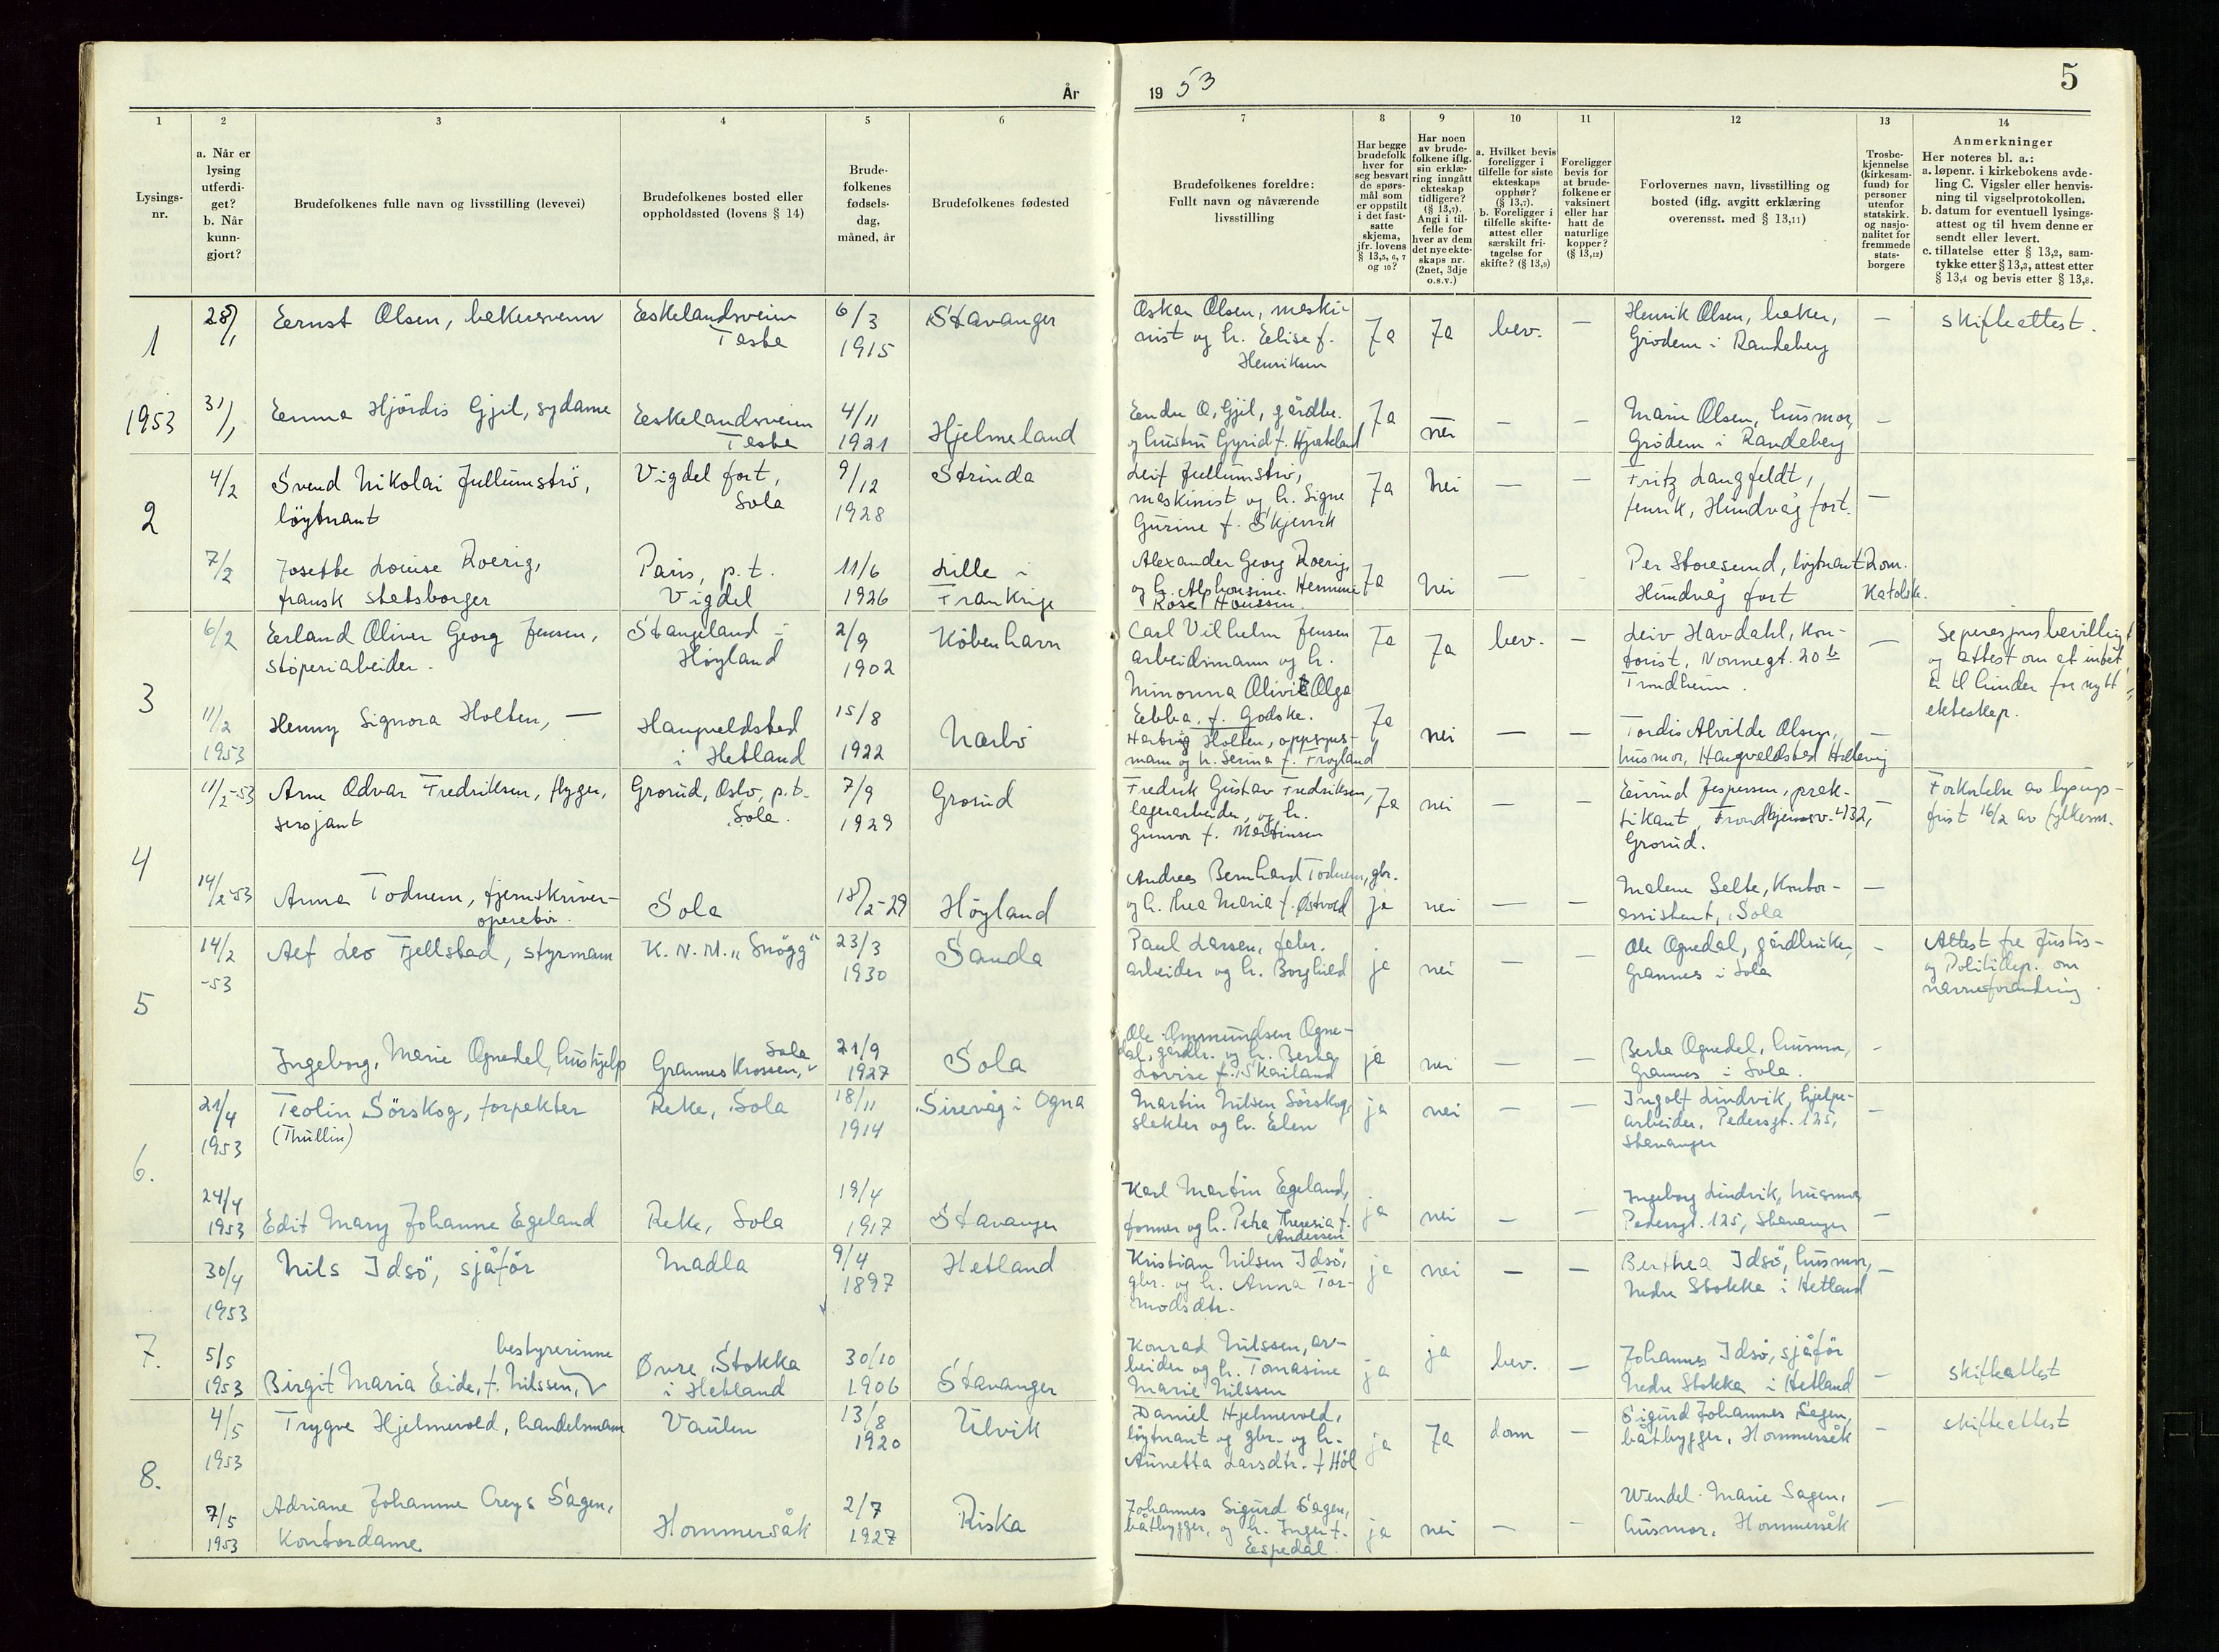 År
19 53
5
1
2
3
4
5
6
7
8
9
10
11
12
13
14
Lysings-
nr.
a. Når er
lysing
utferdi-
get?
b. Når
kunn-
gjort?
Brudefolkenes fulle navn og livsstilling (levevei)
Brudefolkenes bosted eller
oppholdssted (lovens § 14)
Brude-
folkenes
fødsels-
dag,
måned, år
Brudefolkenes fødested
Brudefolkenes foreldre:
Fullt navn og nåværende
livsstilling
Har begge
brudefolk
hver for
seg besvart
de spørs-
mål som
er oppstilt
i det fast-
satte
skjema,
jfr. lovens
§ 13,5, 6, 7
og 10?
Har noen
av brude-
folkene iflg.
sin erklæ-
ring inngått
ekteskap
tidligere?
(§ 13,7).
Angi i til-
felle for
hver av dem
det nye ekte-
skaps nr.
(2net, 3dje
o.s.v.)
a. Hvilket bevis
foreligger i
tilfelle for siste
ekteskaps
opphør?
(§ 13,7).
b. Foreligger i
tilfelle skifte-
attest eller
særskilt fri-
tagelse for
skifte? (§ 13,9)
Foreligger
bevis for
at brude-
folkene er
vaksinert
eller har
hatt de
naturlige
kopper?
(§ 13,12)
Forlovernes navn, livsstilling og
bosted (iflg. avgitt erklæring
overensst. med § 13,11)
Trosbe-
kjennelse
(kirkesam-
fund) for
personer
utenfor
statskirk.
og nasjo-
nalitet for
fremmede
stats-
borgere
Anmerkninger
Her noteres bl. a.:
a. løpenr. i kirkebokens avde-
ling C. Vigsler eller henvis-
ning til vigselprotokollen.
b. datum for eventuell lysings-
attest og til hvem denne er
sendt eller levert.
c. tillatelse etter § 13,2, sam-
tykke etter § 13,3, attest etter
§ 13,4 og bevis etter § 13,8.
1
28/1
Ernst Olsen, bakersvenn
Eskelandsveien
Tasta
6/3
1915
Stavanger
Oskar Olsen, maski-
nist og h. Elise f.
Henriksen
Ja
Ja
bev.
—
Henrik Olsen, baker,
Grödem i Randaberg
—
skifteattest.
1953
31/1
Emma Hjördis Gjil, sydame
Eskelandsveien
Tasta
4/11
1921
Hjelmeland
Endre O. Gjil, gårdbr.
og hustru Gyrid f.
Ja
nei
—
—
Marie Olsen, husmor,
Grödem i Randaberg
—
2
4/2
Svend Nikolai Jullumströ,
löytnant
Vigdel fort,
Sola
9/12
1928
Strinda
Leif Jullumströ,
maskinist og h. Signe
Gurine f. Skjervik
Ja
Nei
—
—
Fritz Langfeldt,
fenrik, Hundvåg fort.
—
7/2
Josette Louise Roerig,
fransk statsborger
Paris, p.t.
Vigdel
11/6
1926
Lille i
Frankrige
Alexander Georg Roerig,
og h. Alphonsine Hermine
Rose Houssin.
Ja
Nei
—
-
Per Storesund, löytnant
Hundvåg fort
Rom.
Katolsk.
3
6/2
Erland Oliver Georg Jensen,
störperiabeider.
Stangeland i
Høyland
2/9
1902
København
Carl Vilhelm Jensen
arbeidsmann og h.
Ninonna Olivia Olga
Ebba f. Godske.
Ja
Ja
bev.
—
Leiv Havdahl, kon-
torist, Nonnegt. 20 b
Trondheim.
—
Seperasjonsbevilling
og attest om at intet
er til hinder for nytt
ekteskap.
11/2
1953
Henny Signora Holten, —
Haugveldstad
i Hetland
15/8
1922
Narbö
Hartvig Holten, oppsyns-
mann og h. Serina f. Frøyland
Ja
nei
—
—
Tordis Alvilde Olsen,
husmor, Haugveldstad Hillevåg
—
4
11/2-53
Arne Odvar Fredriksen, flyger,
sersjant
Grorud, Oslo, p.t.
Sola.
7/9
1929
Grorud
Fredrik Gustav Fredriksen,
lagerarbeider, og h.
Gunvor f. Martinsen
Ja
nei
—
—
Eivind Jespersen, prak-
tikant, Trondhjemsv. 432,
Grorud.
—
Forkortelse av lysings-
frist 16/2 av fylkesm.
14/2-53
Anna Todnem, fjernskriver-
operatør.
Sola
18/2-29
Höyland
Andreas Bernhard Todnem, gbr.
og h. Thea Maria f. Østvold
ja
nei
—
—
Malene Selte, kontor-
assistent, Sola
—
5
14/2
-53
Alf Leo Fjellstad, styrmann
K.N.M. "Snögg"
23/3
1930
Sauda
Paul Larsen, fabr.
arbeider og h. Borghild
ja
nei
—
—
Ole Ognedal, gårdbruker,
Grannes i Sola
—
Attest fra Justis-
og Politidep. om
navneforandring.
Ingeborg, Marie Ognedal, hushjelp
Sola
Grannes Krossen,
21/9
1927
Sola
Ole Ommundsen Ogne-
dal, gårdbr. og h. Berta
Lovise f. Skailand
ja
nei
—
—
Berta Ognedal, husmor,
Grannes i Sola.
—
6.
21/4
1953
Teolin Sörskog, forpakter
(Thullin)
Reke, Sola
18/11
1914
Sirevåg i Ogna
Martin Nilsen Sörskog,
slakter og h. Elen
ja
nei
—
—
Ingolf Lindvik, hjelpe-
arbeider, Pedersgt. 125,
Stavanger
—
24/4
1953
Edit Mary Johanne Egeland
Reke, Sola
19/4
1917
Stavanger
Karl Martin Egeland,
former og h. Petra Theresia f.
Andersen
ja
nei
—
—
Ingeborg Lindvik, husmor,
Pedersgt. 125, Stavanger
—
7.
30/4
1953
Nils Idsö, sjåför
Madla
9/4
1897
Hetland
Kristian Nilsen Idsö,
gbr. og h. Anna Tor-
modsdtr.
ja
nei
—
—
Berthea Idsö, husmor,
Nedre Stokka i Hetland
—
5/5
1953
bestyrerinne
Birgit Maria Eide, f. Nilssen,
Øvre Stokka
i Hetland
30/10
1906
Stavanger
Konrad Nilssen, ar-
beider og h. Tomasine
Marie Nilssen
ja
ja
bev.
—
Johannes Idsö, sjåför
Nedre Stokka i Hetland
—
skifteattest
8.
4/5
1953
Trygve Hjelmevold, handelsmann
Vaulen
13/8
1920
Ulvik
Daniel Hjelmevold,
löytnant og gbr. og h.
Aunetta Larsdtr. f. Höl
ja
Ja
dom
—
Sigurd Johannes Sagen,
båtbygger, Hommersåk
—
skifteattest
7/5
1953
Adriane Johanne Creys Sagen,
Kontordame
Hommersåk
2/7
1927
Riska
Johannes Sigurd Sagen,
båtbygger, og h. Inger f.
Espedal.
ja
nei
—
—
Wendel Marie Sagen,
husmor, Hommersåk
—